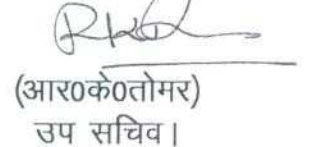 (आर0के0तोमर)
उप सचिव।